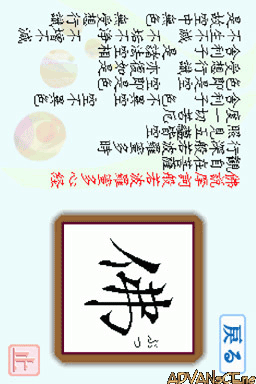 佛説摩訶般若波羅蜜多心経
観自在菩薩
行深般若波羅蜜多時
照見五蘊皆空
度一切苦厄
舎利子 色不異空 空不異色
色即是空 空即是色
受想行識 亦復如是
舎利子 是諸法空相
不生不滅 不垢不浄 不増不減
是故空中 無色 無受想行識
佛
ぶっ
戻る
止